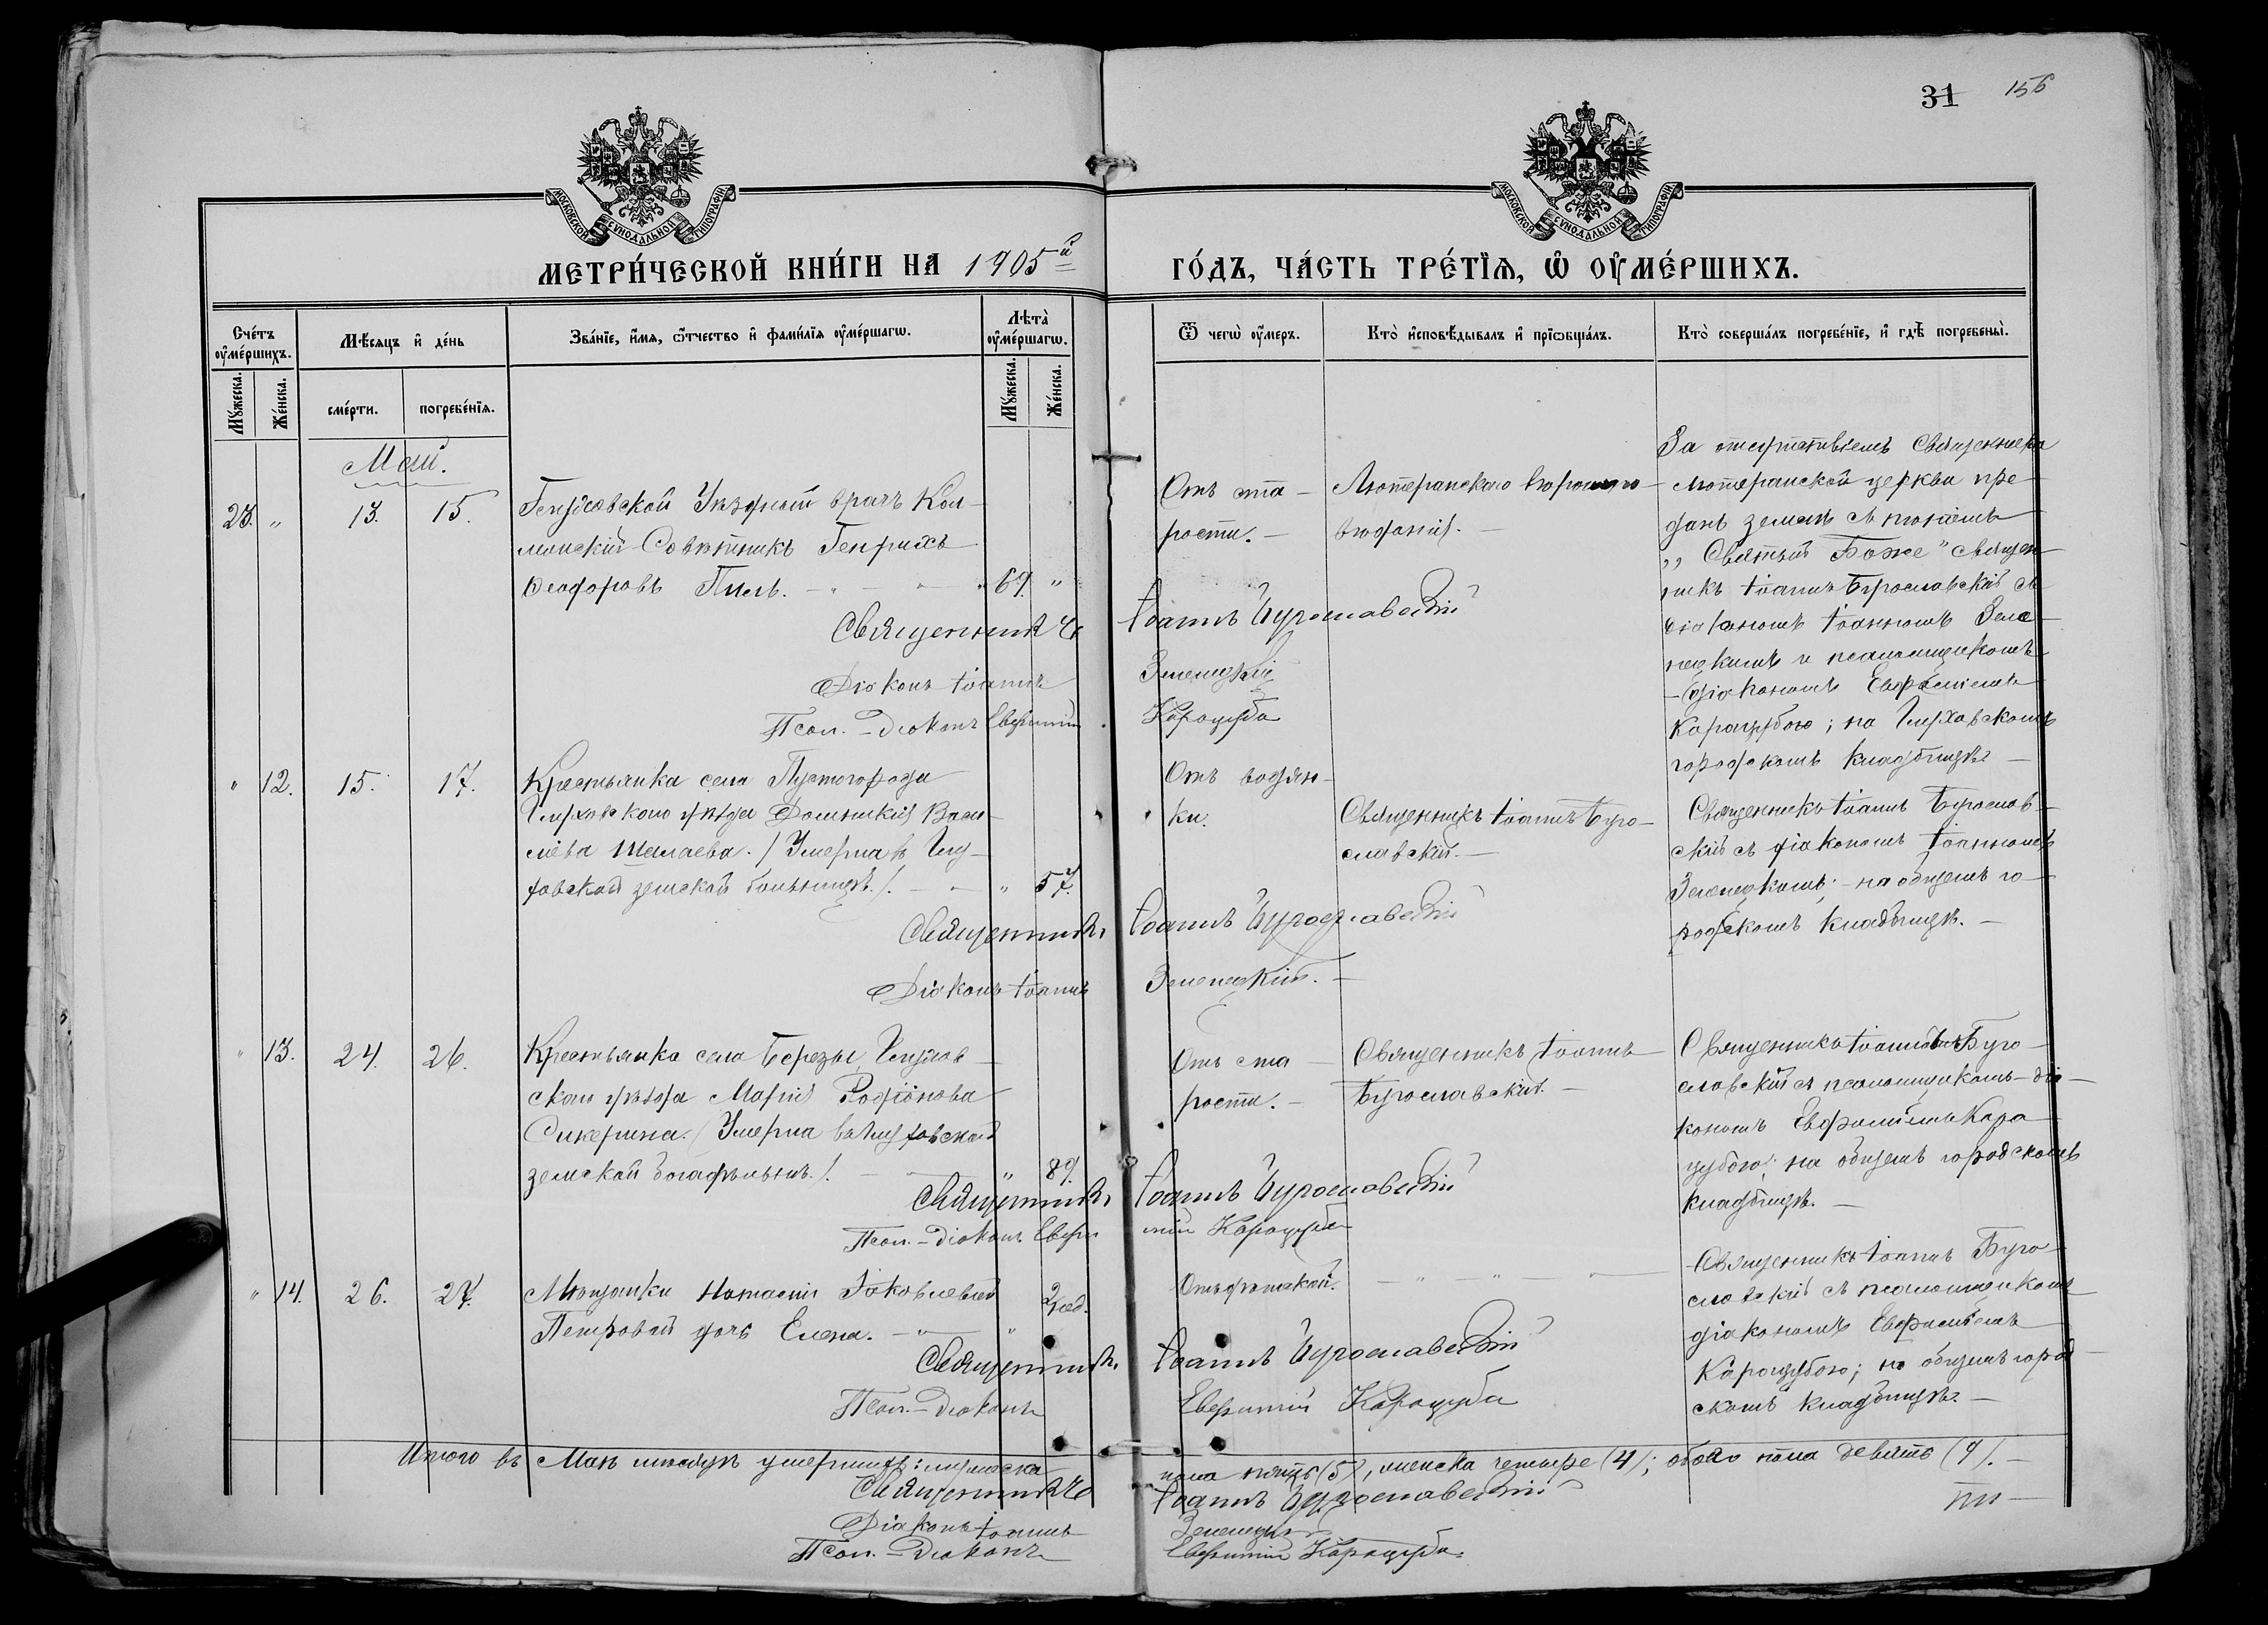 31 156
МОСКОВСКОЙ СѴНОДАЛЬНОЙ ТИПОГРАФІИ
МОСКОВСКОЙ СѴНОДАЛЬНОЙ ТИПОГРАФІИ
МЕТРИ́ЧЕСКОЙ КНИ́ГИ НА 1905й
ГО́ДЪ, ЧА́СТЬ ТРЕ́ТЇѦ, Ѡ҆ ОУ҆МЕ́РШИХЪ.
Сче́тъ оу҆ме́ршихъ.
Мѣ́сяцъ и҆ де́нь
Зва́нїе, и҆́мѧ, ѻ҆́тчество и҆ фами́лїѧ оу҆ме́ршагѡ.
Лѣта̀ оу҆ме́ршагѡ.
Ѿ чегѡ̀ оу҆́меръ.
Кто̀ и҆сповѣ́дывалъ и҆ прїѡбща́лъ.
Кто̀ соверша́лъ погребе́нїе, и҆ гдѣ̀ погребены̀.
Мꙋ́жеска.
Же́нска.
сме́рти.
погребе́нїѧ.
Мꙋ́жеска.
Же́нска.
Май.
23. „ 13. 15.
Глуховской Уѣздный врачъ Кол-
лежскій Совѣтникъ Генрихъ
Ѳеодоровъ 69. „
Отъ ста-
рости.
Лютеранскаго вѣроиспо-
вѣданія.
За отсутствіемъ Священника
лютеранской церкви пре-
данъ землѣ съ пѣніемъ
„Святый Боже" священ-
никъ Іоаннъ Бугославскій съ
діакономъ Іоанномъ Зеле-
нецкимъ и псаломщикомъ
-діакономъ Евфиміемъ
Карацубою; на Глуховскомъ
городскомъ кладбищѣ
Священникъ Іоаннъ Бугославскій
Діаконъ Іоаннъ Зеленецкій
Псал.-Діаконъ Евфимій Карацуба
„ 12. 15. 17.
Крестьянка села Пустогорода
Глуховскаго уѣзда Домникія Васи-
ліева Шалаева. (Умерла въ Глу-
ховской земской больницѣ). „ 57.
Отъ водян-
ки.
Священникъ Іоаннъ Буго-
славскій.
Священникъ Іоаннъ Бугослав-
скій съ діакономъ Іоанномъ
Зеленецкимъ; на общемъ го-
родскомъ кладбищѣ.
Священникъ Іоаннъ Бугославскій
Діаконъ Іоаннъ Зеленецкій.
„ 13. 24. 26.
Крестьянка села Березы, Глухов-
скаго уѣзда Марія Родіонова
Сикерина. (Умерла въ Глуховской
земской богадѣльнѣ). „ 89.
Отъ ста-
рости.
Священникъ Іоаннъ
Бугославскій.
Священникъ Іоаннъ Буго-
славскій съ псаломщикомъ-діа-
кономъ Евфиміемъ Кара-
цубою; на общемъ городскомъ
кладбищѣ.
Священникъ Іоаннъ Бугославскій
Псал.-Діаконъ Евфимій Карацуба
„ 14. 26. 27.
Мѣщанки Наталіи Іаковлевой
Петровой дочь Елена. „ 2 нед.
Священникъ Іоаннъ Буго-
славскій съ псаломщикомъ
діакономъ Евфиміемъ
Карацубою; на общемъ город-
скомъ кладбищѣ.
Священникъ Іоаннъ Бугославскій
Псал.-Діаконъ Евфимій Карацуба
Итого въ Маѣ мѣсяцѣ умершихъ: мужеска пола пять (5), женска четыре (4); обоего пола девять (9).
Священникъ Іоаннъ Бугославскій
Діаконъ Іоаннъ Зеленецкій
Псал.-Діаконъ Евфимій Карацуба.